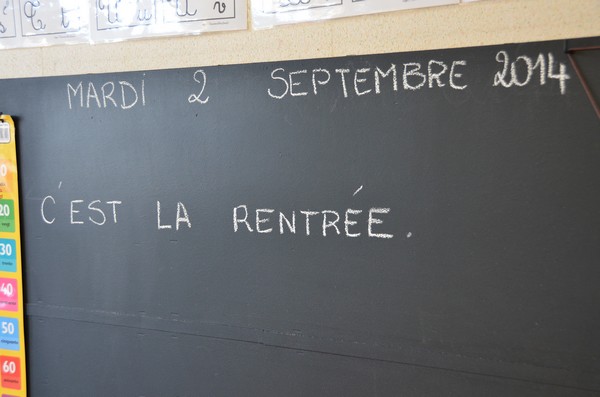 MARDI 2 SEPTEMBRE 2014
C'EST LA RENTRÉE.
20
30
40
50
60